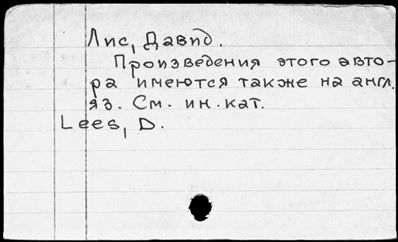 Лис, Давид.
Произведения этого авто-
ра имеются также на англ.
яз. См. ин. кат.
Lees, D.